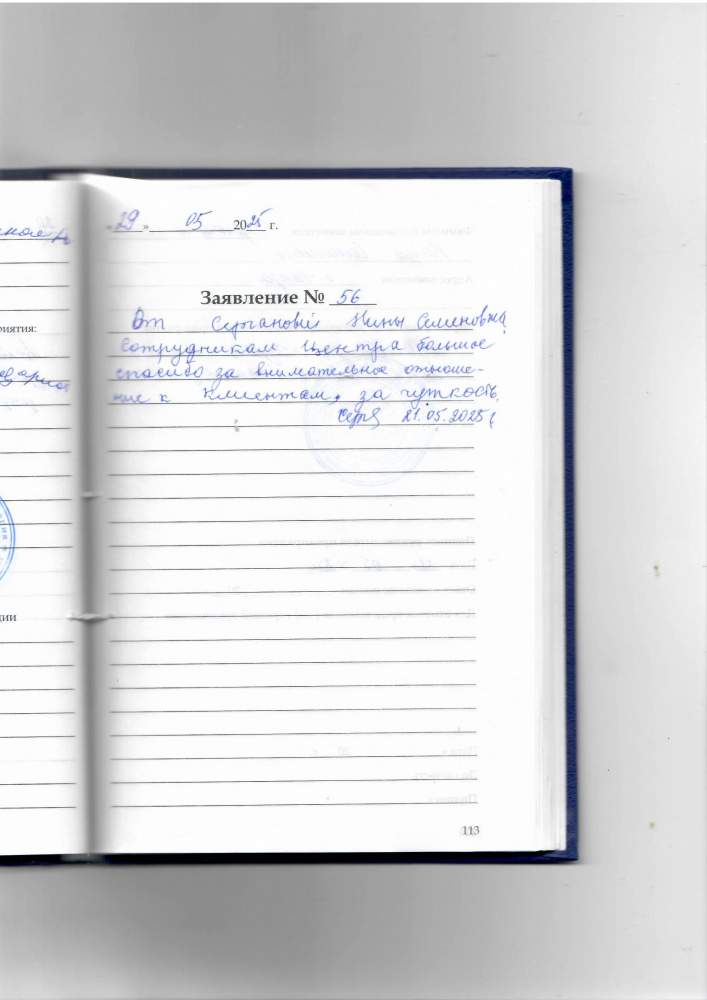 «29» 05 2025 г.
Заявление № 56
От Сергановiй Нины Семеновна
Сотрудникам Центра большое
спасибо за внимательное отноше-
ние к клиентам, за чуткость.
21.05.2025г
риятия:
ции
113